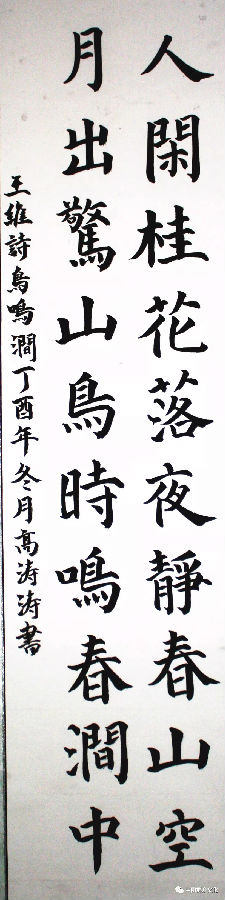 人閑桂花落夜靜春山空
月出驚山鳥時鳴春澗中
王維詩鳥鳴澗丁酉年冬月高涛涛書